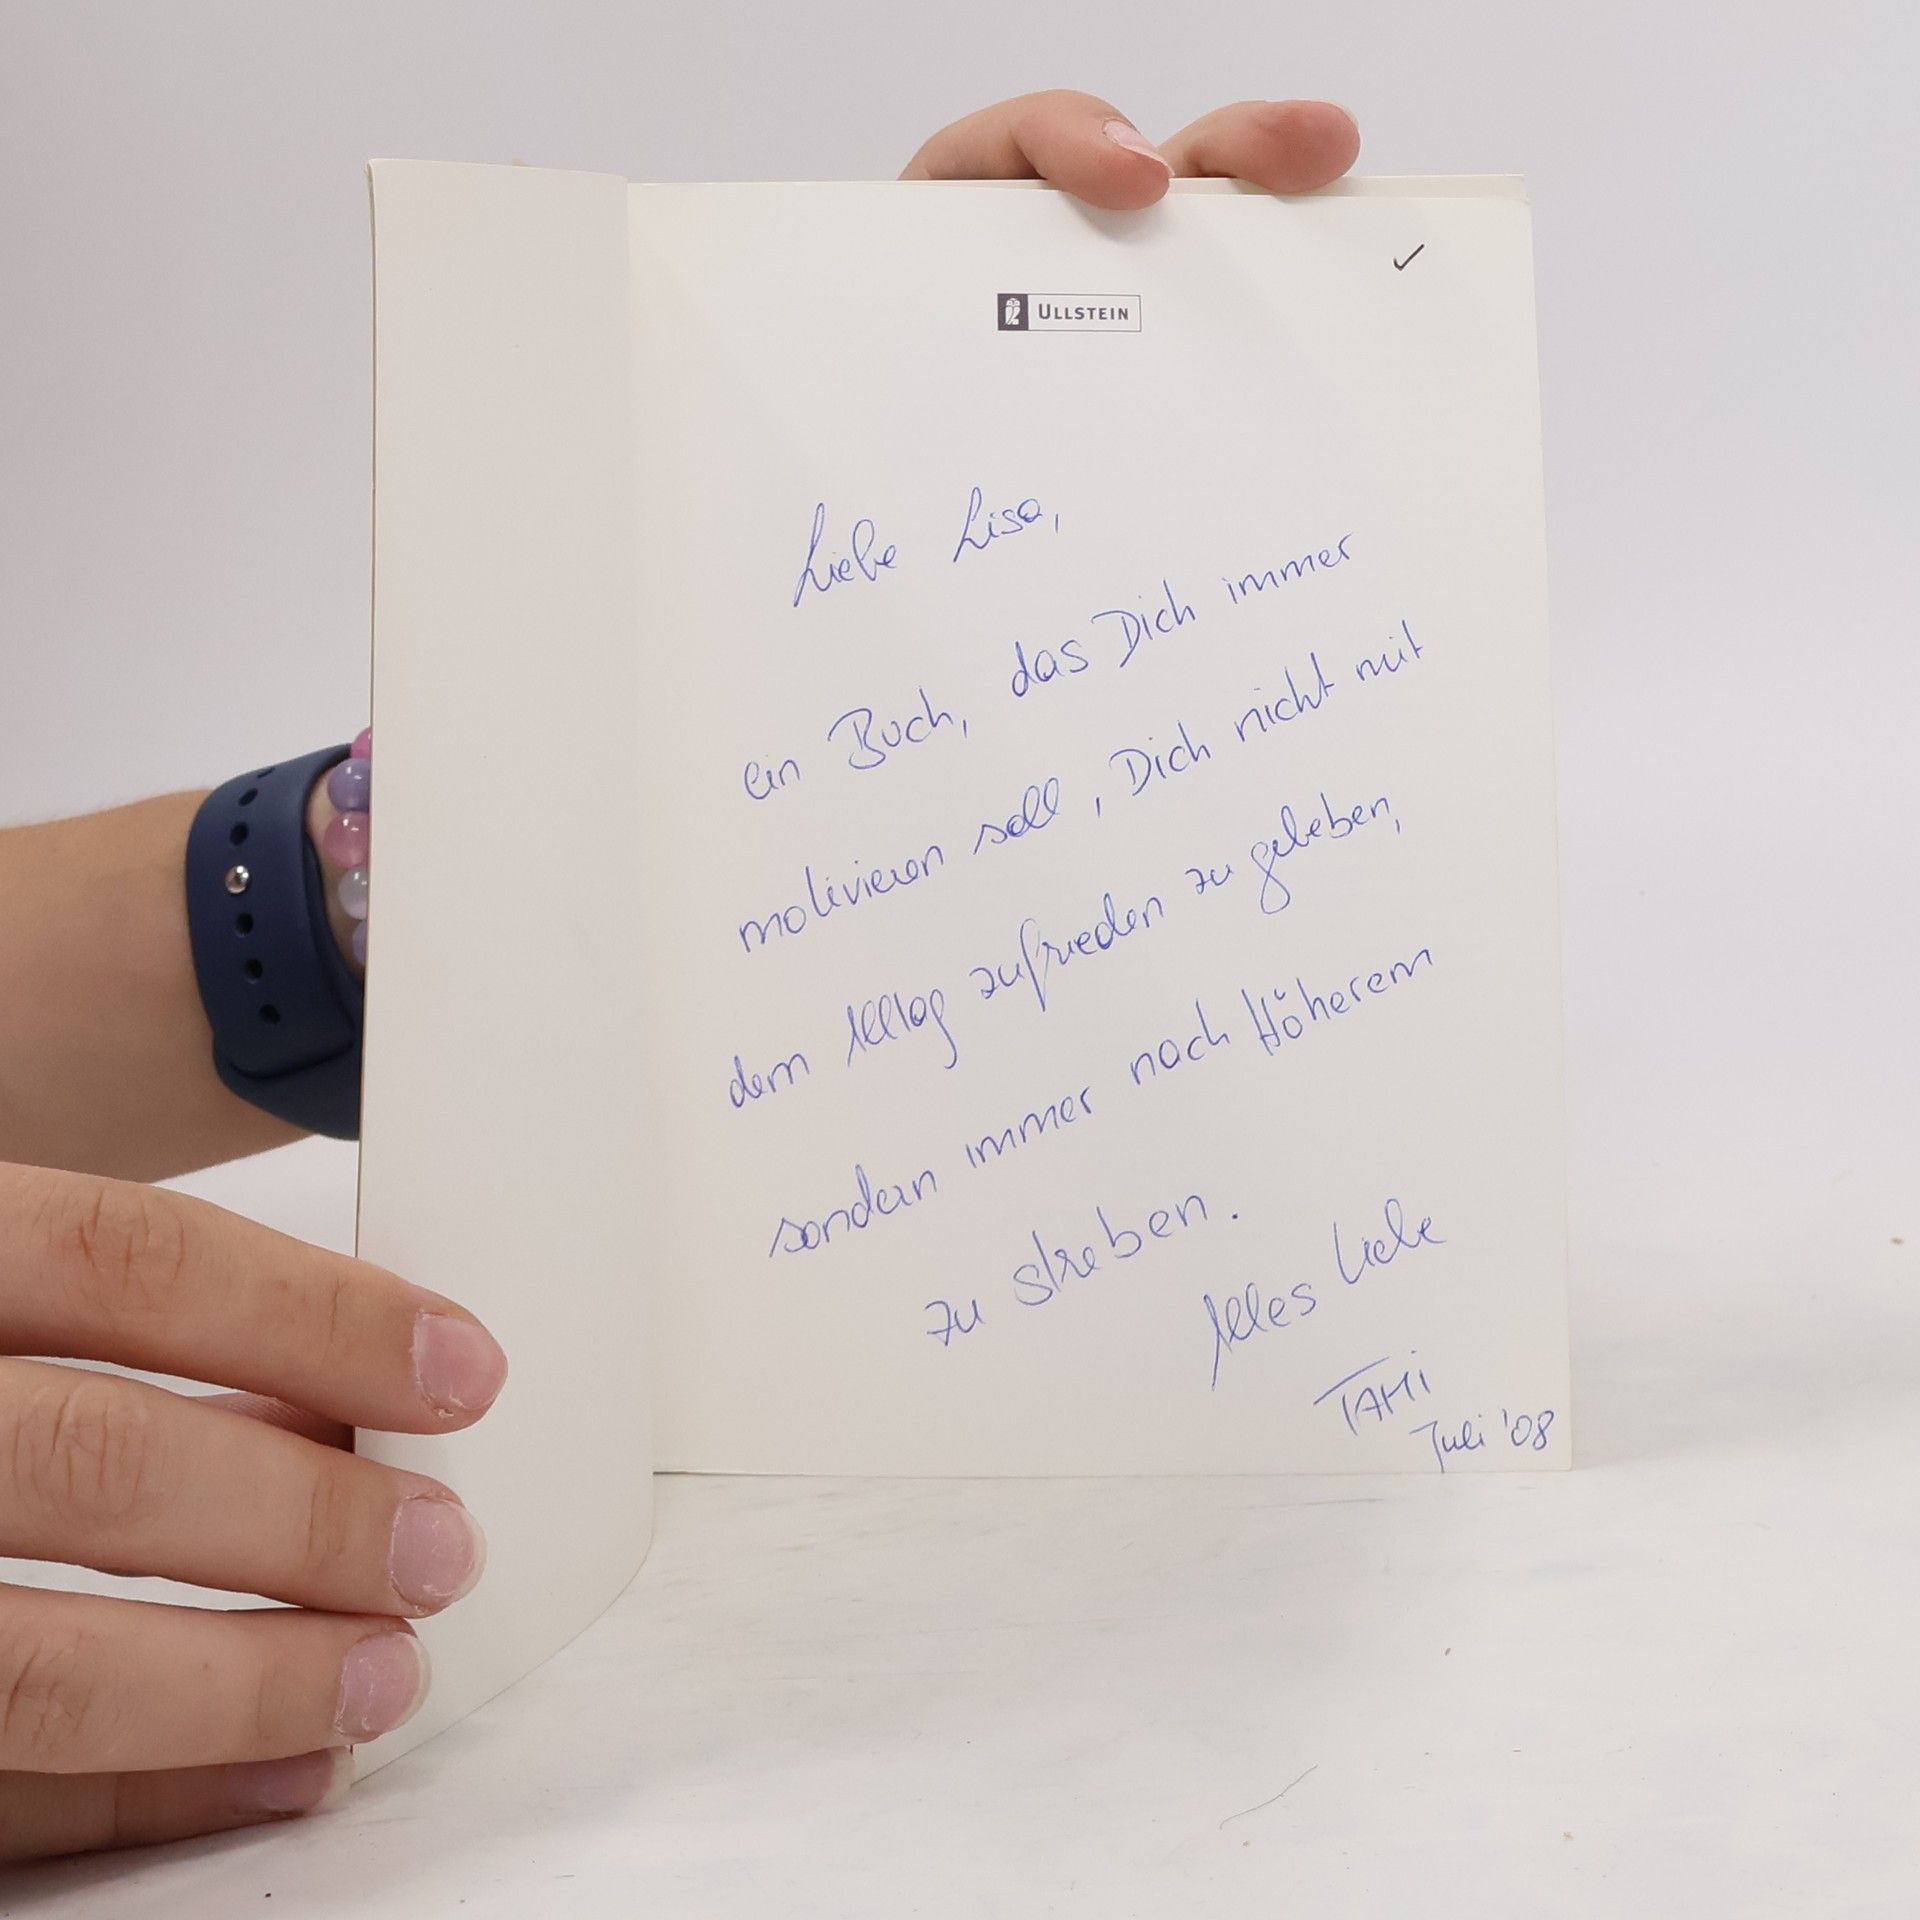 ULLSTEIN
Liebe Lisa,
ein Buch, das Dich immer
motivieren soll, Dich nicht mit
dem Alltag zufrieden zu gebeben,
sondern immer nach Höherem
zu streben.
Alles Liebe
TAMi
Juli '08